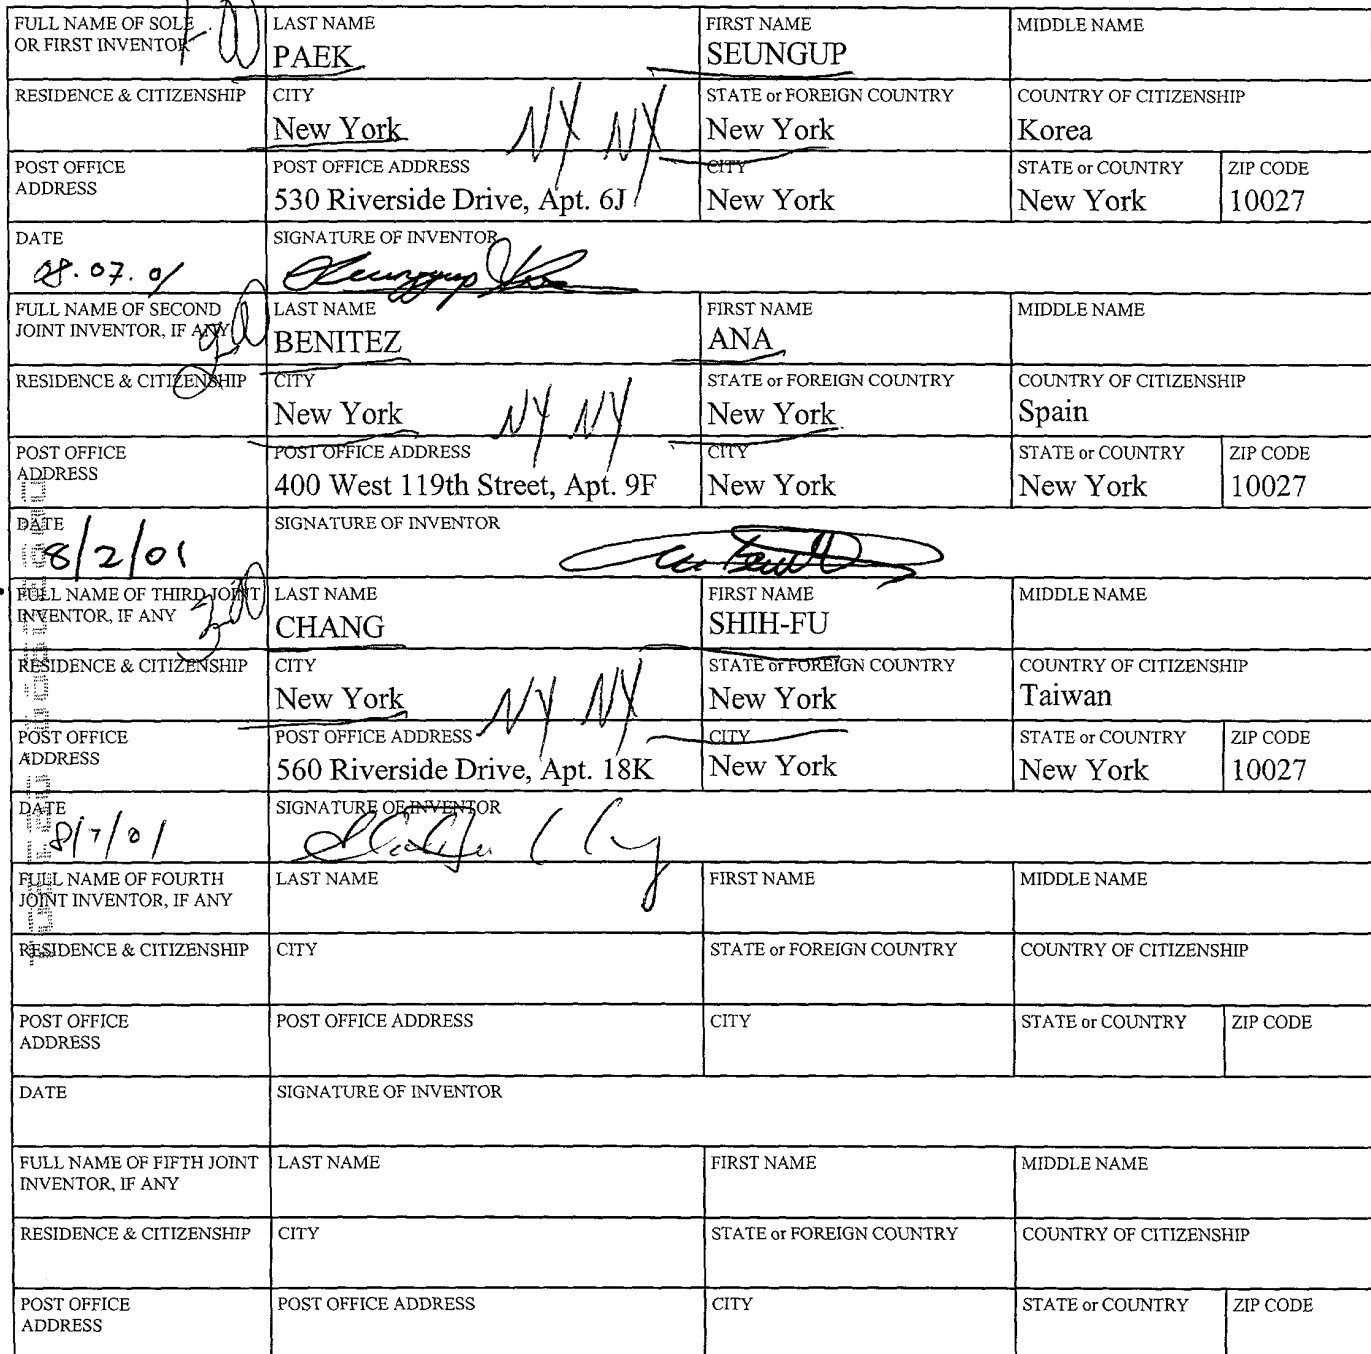 FULL NAME OF SOLE OR FIRST INVENTOR
LAST NAME PAEK
FIRST NAME SEUNGUP
MIDDLE NAME
RESIDENCE & CITIZENSHIP
CITY New York NY NY
STATE or FOREIGN COUNTRY New York
COUNTRY OF CITIZENSHIP Korea
POST OFFICE ADDRESS
POST OFFICE ADDRESS 530 Riverside Drive, Apt. 6J
CITY New York
STATE or COUNTRY New York
ZIP CODE 10027
DATE 08.07.01
SIGNATURE OF INVENTOR
FULL NAME OF SECOND JOINT INVENTOR, IF ANY
LAST NAME BENITEZ
FIRST NAME ANA
MIDDLE NAME
RESIDENCE & CITIZENSHIP
CITY New York NY NY
STATE or FOREIGN COUNTRY New York
COUNTRY OF CITIZENSHIP Spain
POST OFFICE ADDRESS
POST OFFICE ADDRESS 400 West 119th Street, Apt. 9F
CITY New York
STATE or COUNTRY New York
ZIP CODE 10027
DATE 8/2/01
SIGNATURE OF INVENTOR
FULL NAME OF THIRD JOINT INVENTOR, IF ANY
LAST NAME CHANG
FIRST NAME SHIH-FU
MIDDLE NAME
RESIDENCE & CITIZENSHIP
CITY New York NY NY
STATE or FOREIGN COUNTRY New York
COUNTRY OF CITIZENSHIP Taiwan
POST OFFICE ADDRESS
POST OFFICE ADDRESS 560 Riverside Drive, Apt. 18K
CITY New York
STATE or COUNTRY New York
ZIP CODE 10027
DATE 8/7/01
SIGNATURE OF INVENTOR
FULL NAME OF FOURTH JOINT INVENTOR, IF ANY
LAST NAME
FIRST NAME
MIDDLE NAME
RESIDENCE & CITIZENSHIP
CITY
STATE or FOREIGN COUNTRY
COUNTRY OF CITIZENSHIP
POST OFFICE ADDRESS
POST OFFICE ADDRESS
CITY
STATE or COUNTRY
ZIP CODE
DATE
SIGNATURE OF INVENTOR
FULL NAME OF FIFTH JOINT INVENTOR, IF ANY
LAST NAME
FIRST NAME
MIDDLE NAME
RESIDENCE & CITIZENSHIP
CITY
STATE or FOREIGN COUNTRY
COUNTRY OF CITIZENSHIP
POST OFFICE ADDRESS
POST OFFICE ADDRESS
CITY
STATE or COUNTRY
ZIP CODE